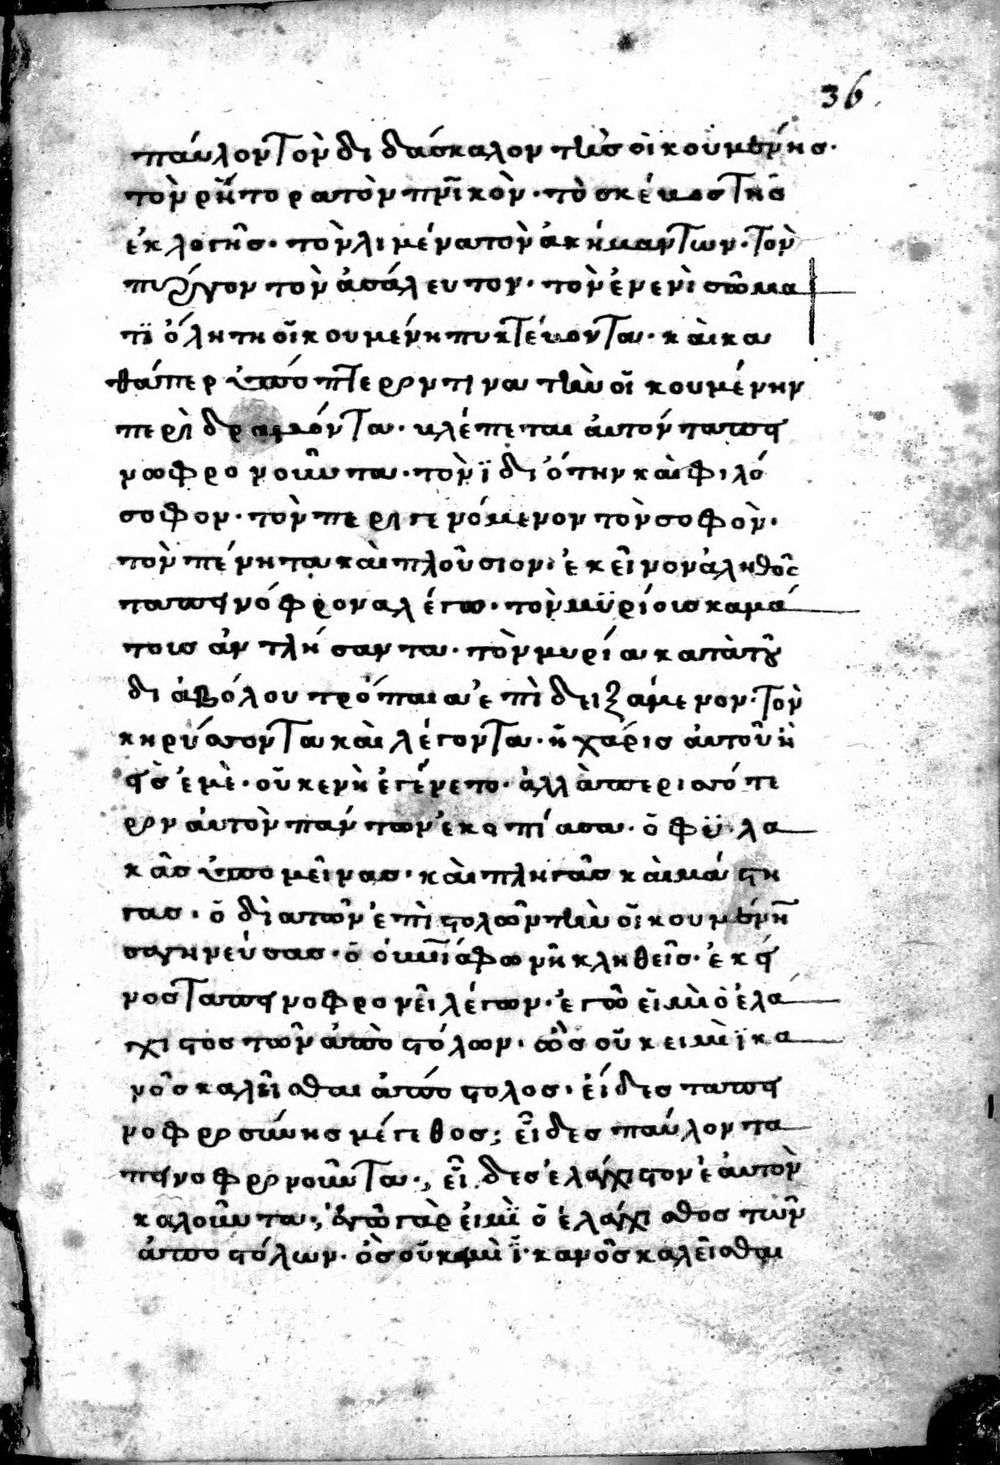 36
παύλον τὸν διδάσκαλον τῆς οἰκουμένης·
τὸν ρήτορα τὸν πνικὸν· τὸ σκέυος τῆς
ἐκλογῆς· τὸν λιμένα τὸν ἀκήμαντων· τὸν
πύργον τὸν ἀσάλευτον· τὸν ἐν ενὶ σώμα
τϊ ὅλη τη οἰκουμένη πυκτέυοντα· και κα
θάπερ ὑπόπτερόν τινα τὴν οἰκουμένην
περιδραμόντα· βλέπεται ἀυτόν ταπει
νοφρονοῦντα· τὸν ϊδιότην καὶ φιλό
σοφον· τὸν περιγενόμενον τὸν σοφὸν·
τὸν πένητα καὶ πλούσιον· ἐκεῖνον ἀληθῶς
ταπεινόφρονα λέγω· τὸν μϋρίοις καμά
τοις ἀντλήσαντα· τὸν μυρία κατὰ τοῦ
διάβόλου τρόπαια ἐπιδειξάμενον· τὸν
κηρύσσοντα καὶ λέγοντα· ἡ χάρις ἀυτοῦ ἡ
εἰς ἐμὲ· οὐ κενὴ ἐγένετο· ἀλλὰ περισσότε
ρον ἀυτὸν πάντων ἐκοπίασα· ὁ φϋλα
κὰς ὑπομεῖνας· καὶ πληγὰς καὶ μάστη
γας· ὁ διὰ τῶν ἐπιστολῶν τὴν οἰκουμένην
σαγηνεύσας· ὁ ουνίᾳ φωνῆ κληθεὶς· ἐκεῖ
νος ταπεινοφρονεῖ λέγων· ἐγὼ εἰμὶ ὁ ἐλά
χιστος τῶν ἀποστόλων· ὡς οὐκ ειμὶ ϊκα
νὸς καλεῖσθαι ἀπόστολος· εἶδες ταπει
νοφροσύνης μέγεθος; εἶδες παύλον τα
πεινοφρονοῦντα; εἶδες ἐλάχιστον ἑαυτὸν
καλοῦντα; ἐγὼ γὰρ ἐιμὶ ὁ ἐλάχισθος τῶν
ἀποστόλων· ὃς οὐκ εἰμὶ ϊκανὸς καλεῖσθαι